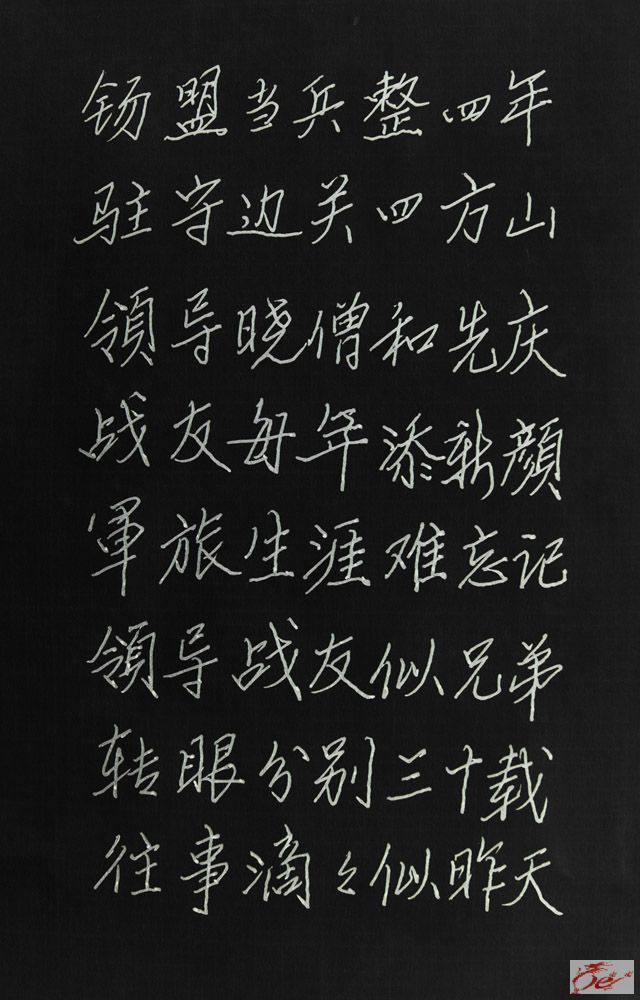 钖盟当兵整四年
驻守边关四方山
領导晓僧和先庆
战友每年添新顔
軍旅生涯难忘记
領导战友似兄弟
转眼分别三十载
往事滴々似昨天